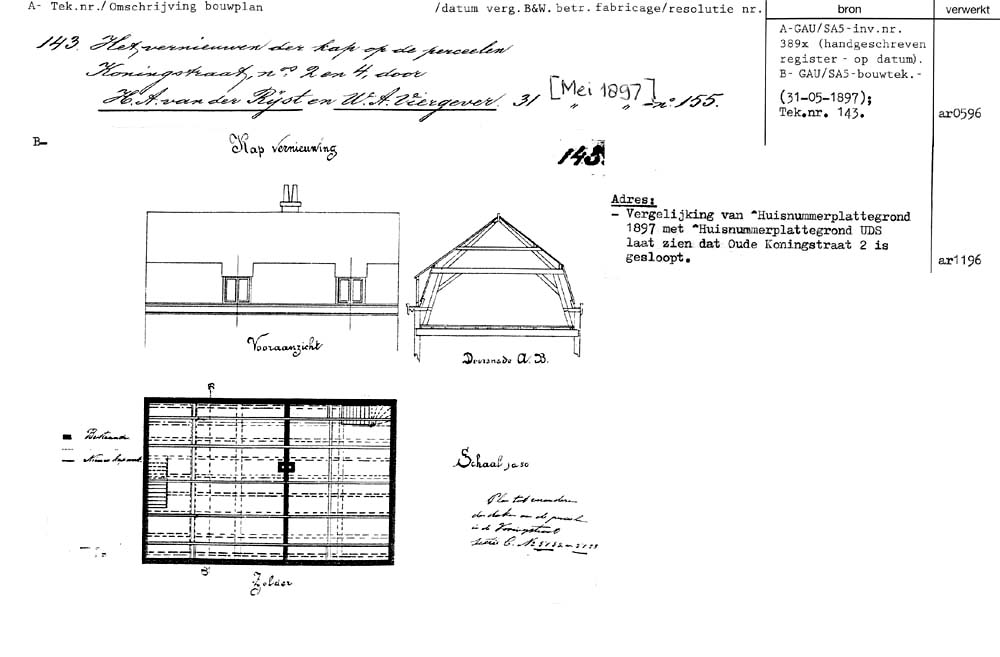 A- Tek.nr./Omschrijving bouwplan /datum verg.B&W. betr. fabricage/resolutie nr.
bron
verwerkt
143. Het vernieuwen der kap op de perceelen
Koningstraat, nos 2 en 4, door
H. A. van der Rijst en W. A. Viergever. 31 [Mei 1897] " " - no 155.
A-GAU/SA5-inv.nr.
389x (handgeschreven
register - op datum).
B- GAU/SA5-bouwtek.-
(31-05-1897);
Tek.nr. 143.
ar0596
B-
Kap vernieuwing
143.
Adres:
- Vergelijking van ^Huisnummerplattegrond
1897 met ^Huisnummerplattegrond UDS
laat zien dat Oude Koningstraat 2 is
gesloopt.
ar1196
Vooraanzicht
Doorsnede A. B.
Bestaande
Schaal
Plan tot veranderen
der daken van de perceelen
in de Koningstraat
sectie C. No
Zolder